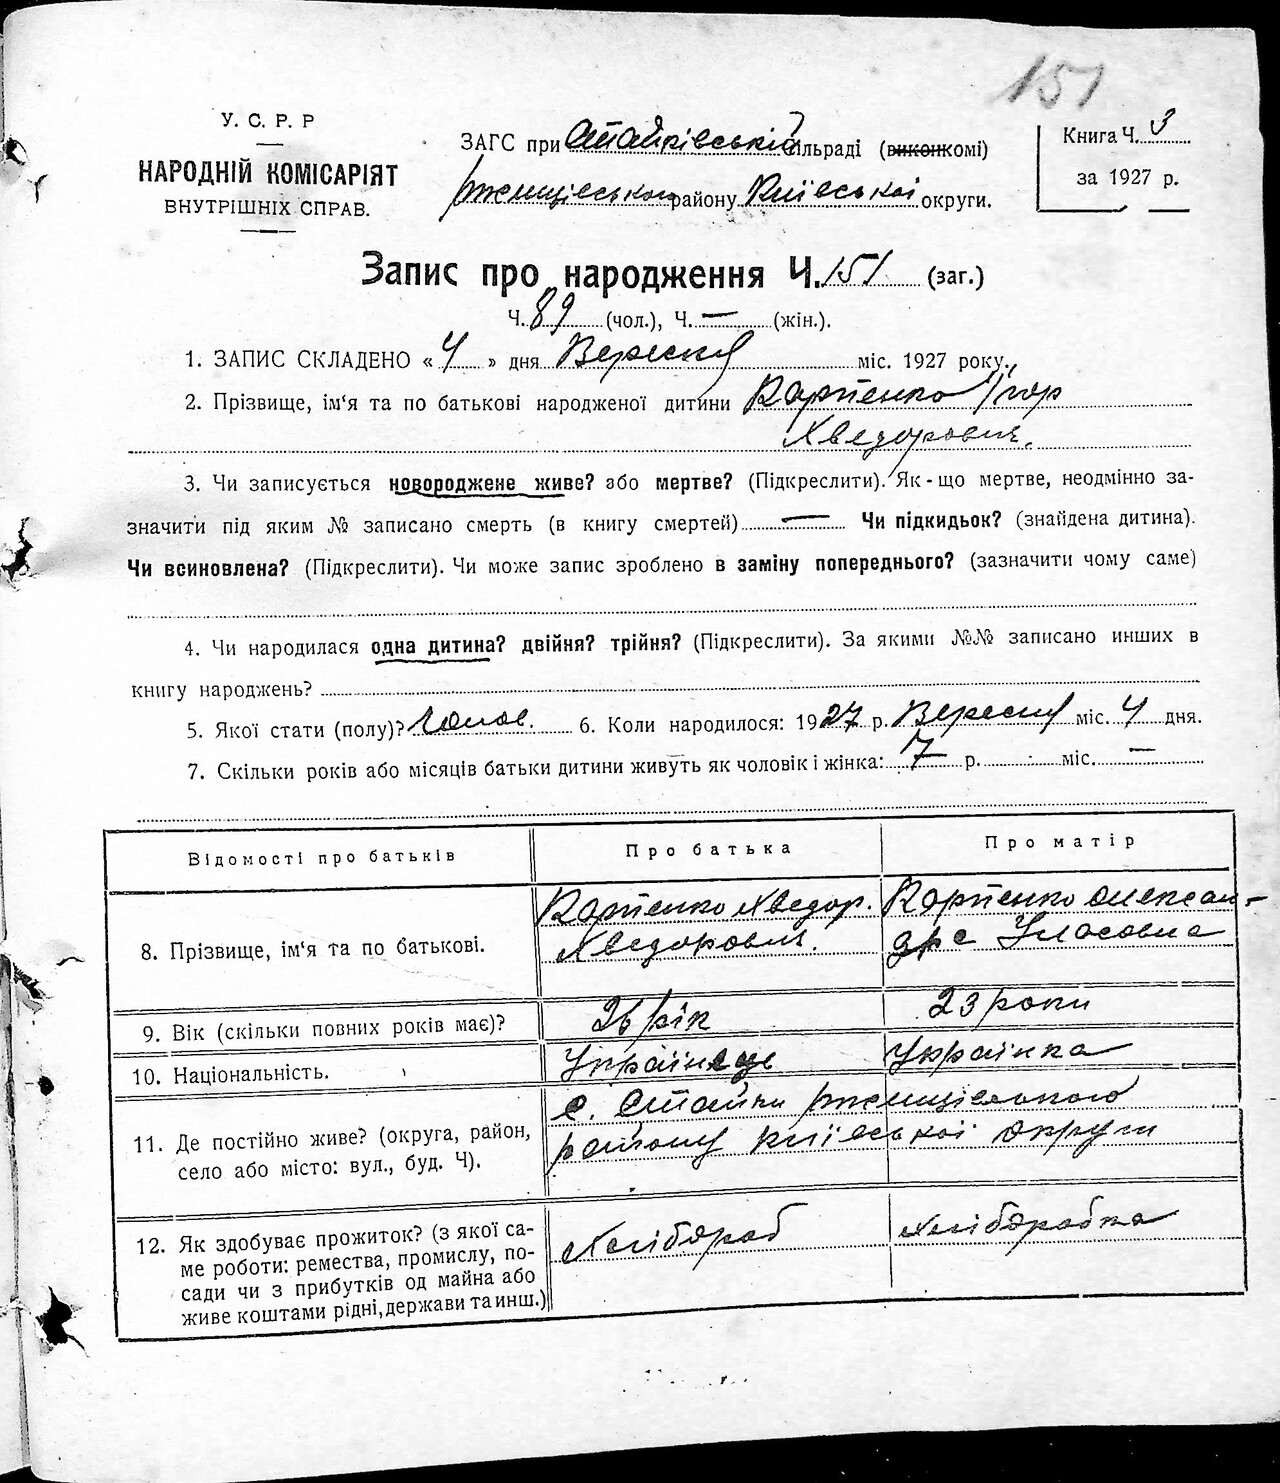 151
У. С. Р. Р
НАРОДНІЙ КОМІСАРІЯТ
ВНУТРІШНІХ СПРАВ.
ЗАГС при Стайківській сільраді (виконкомі)
Ржищівського району Київської округи.
Книга Ч. 3
за 1927 р.
Запис про народження Ч. 151 (заг.)
Ч. 89 (чол.), Ч. — (жін.).
1. ЗАПИС СКЛАДЕНО « 4 » дня Вересня міс. 1927 року.
2. Прізвище, ім'я та по батькові народженої дитини Карпенко Ігор
Хведорович.
3. Чи записується новороджене живе? або мертве? (Підкреслити). Як-що мертве, неодмінно за-
значити під яким № записано смерть (в книгу смертей) — Чи підкидьок? (знайдена дитина).
Чи всиновлена? (Підкреслити). Чи може запис зроблено в заміну попереднього? (зазначити чому саме)
4. Чи народилася одна дитина? двійня? трійня? (Підкреслити). За якими №№ записано инших в
книгу народжень?
5. Якої стати (полу)? Чолов. 6. Коли народилося: 1927 р. Вересня міс. 4 дня.
7. Скільки років або місяців батьки дитини живуть як чоловік і жінка: 7 р. міс. —
Відомості про батьків Про батька Про матір
Карпенко Хведор. Карпенко Олексан-
8. Прізвище, ім'я та по батькові. Хведорович. дра Уласовна
9. Вік (скільки повних років має)? 26 рік 23 роки
10. Національність. Українець Українка
с. Стайки Ржищівського
11. Де постійно живе? (округа, район, району Київської округи
село або місто: вул., буд. Ч).
12. Як здобуває прожиток? (з якої са- Хлібороб Хліборобка
ме роботи: ремества, промислу, по-
сади чи з прибутків од майна або
живе коштами рідні, держави та инш.)